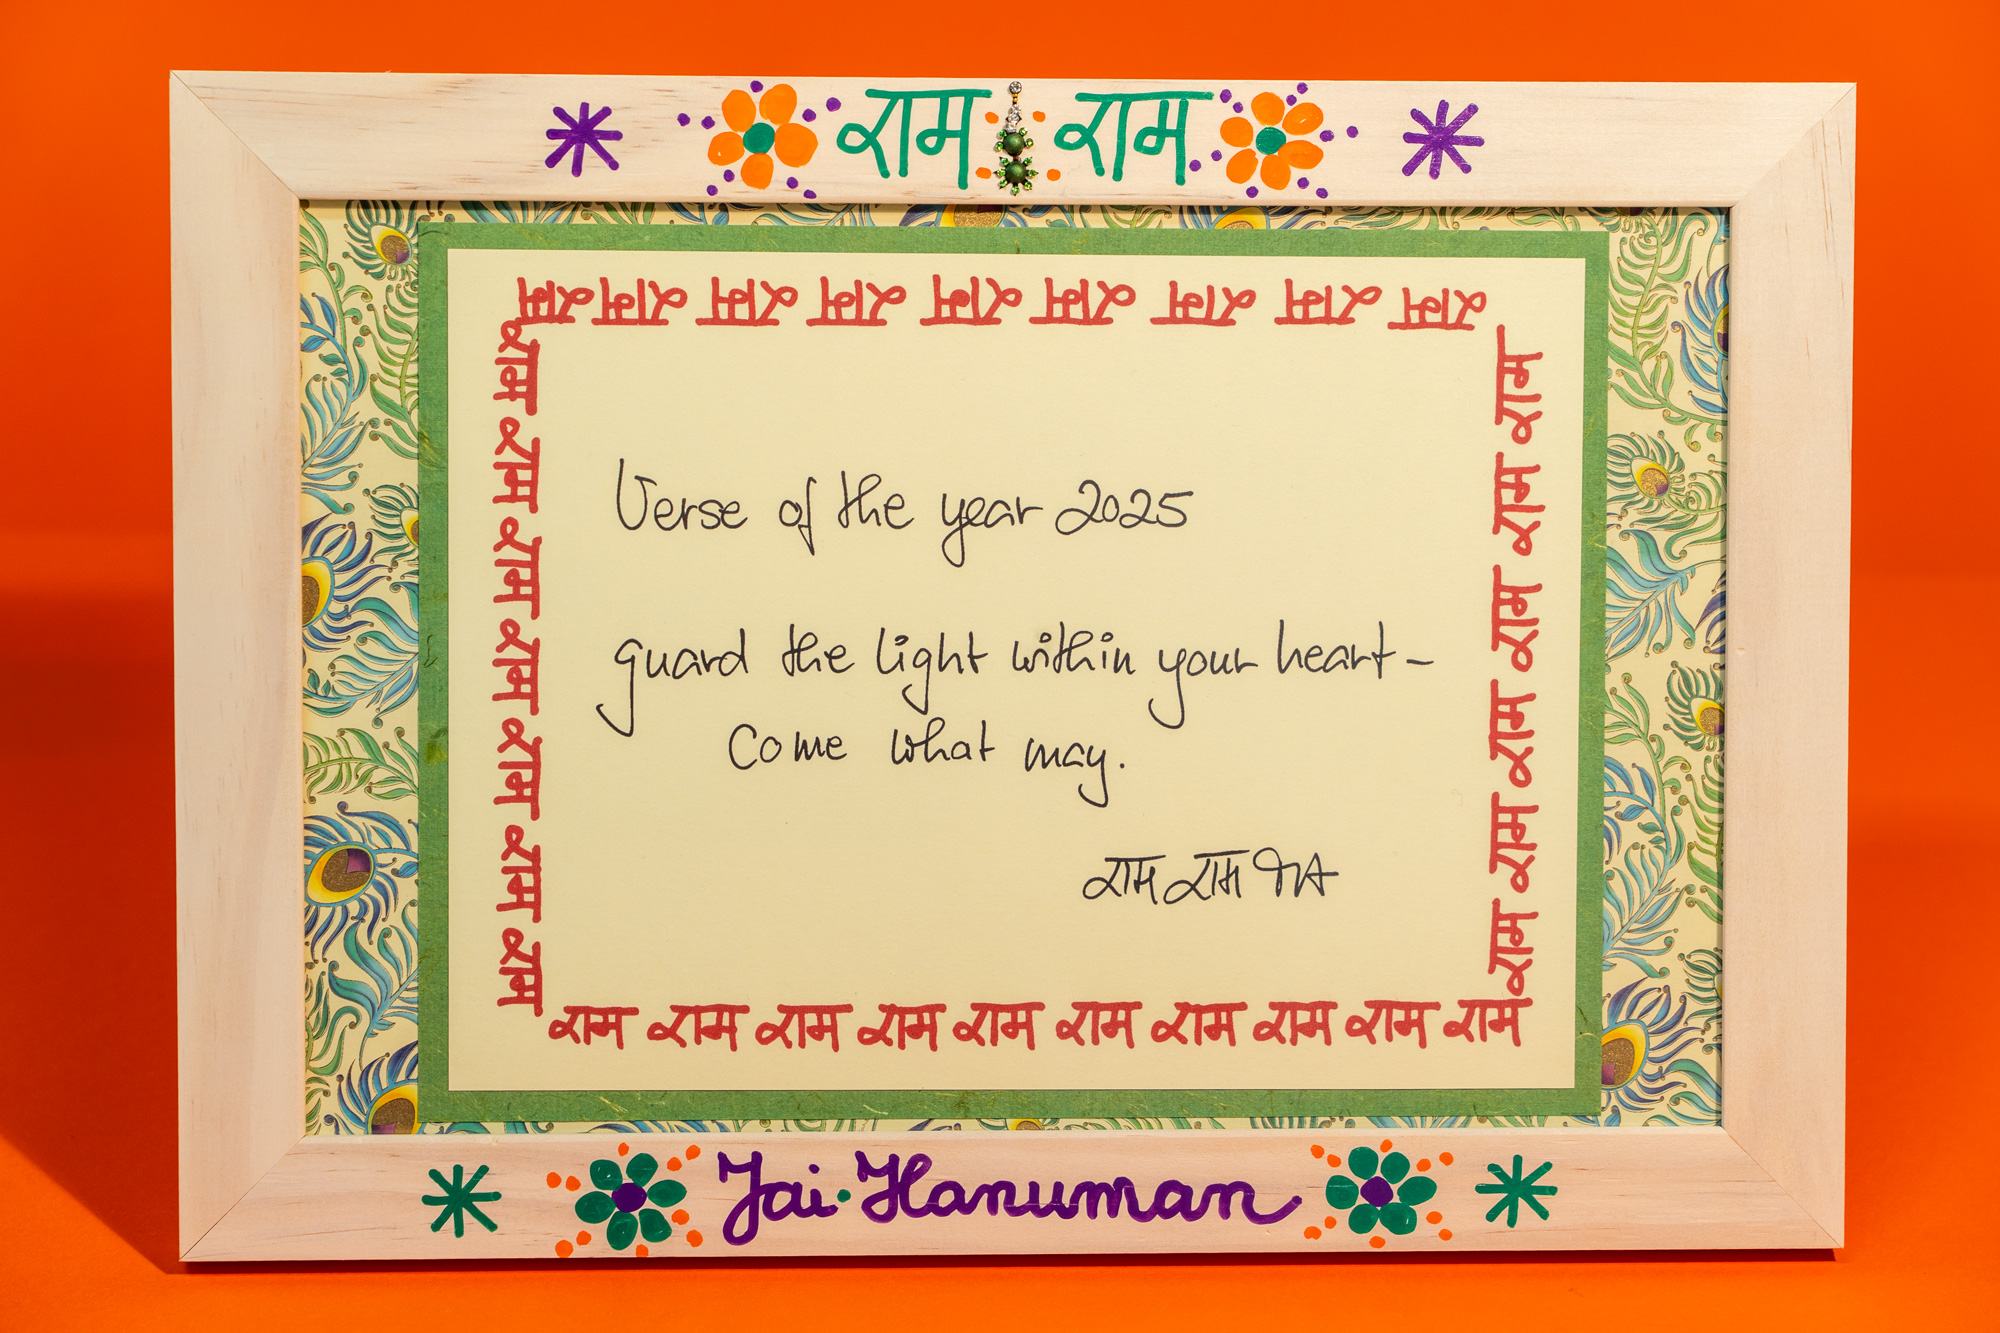 राम राम
राम राम राम राम राम राम राम राम राम
राम राम राम राम राम राम राम
राम राम राम राम राम राम
Verse of the year 2025
guard the light within your heart –
Come what may.
राम राम
राम राम राम राम राम राम राम राम राम राम
Jai Hanuman